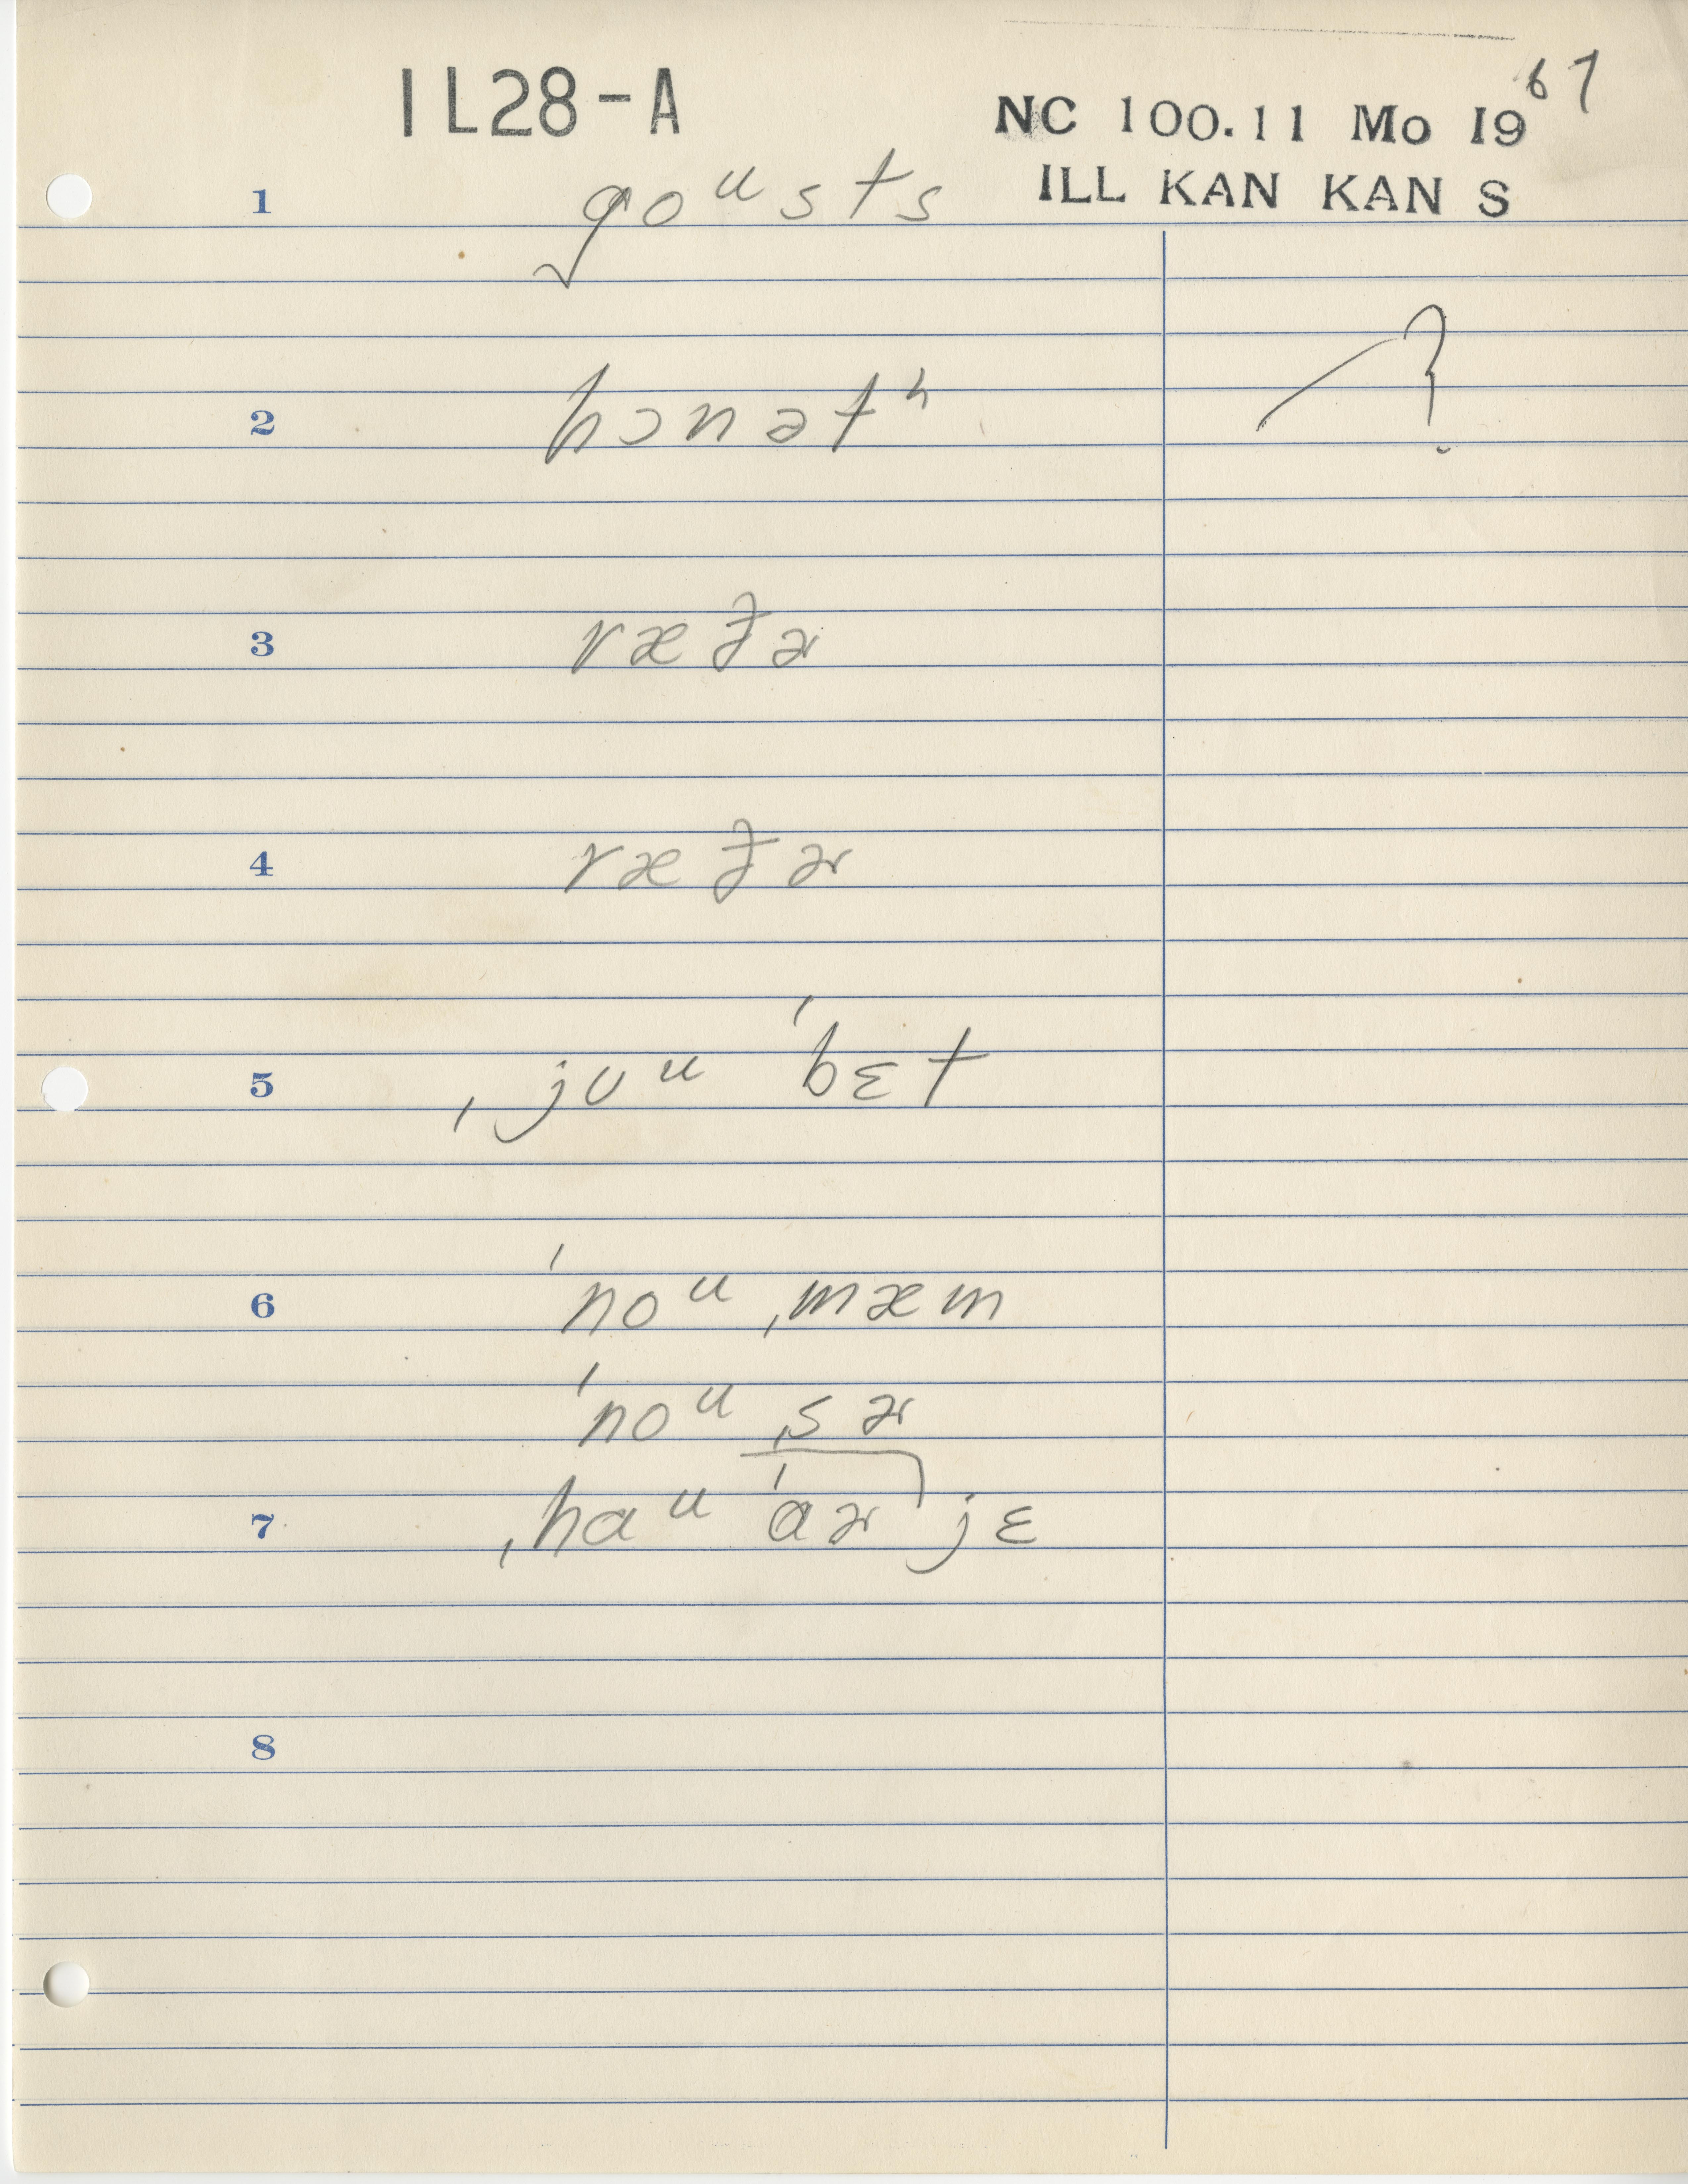 IL28-A
67
NC 100.11 Mo 19
ILL KAN KAN S
1 goᵘsts
2 hɔnətʰ ?
3 ræðɚ
4 ræðɚ
5 ˌjʊᵘ ˈbɛt
6 ˈnoᵘ ˌmæm
ˈnoᵘ ˌsɚ
7 ˌhaᵘ ˈɑɚ jɛ
8